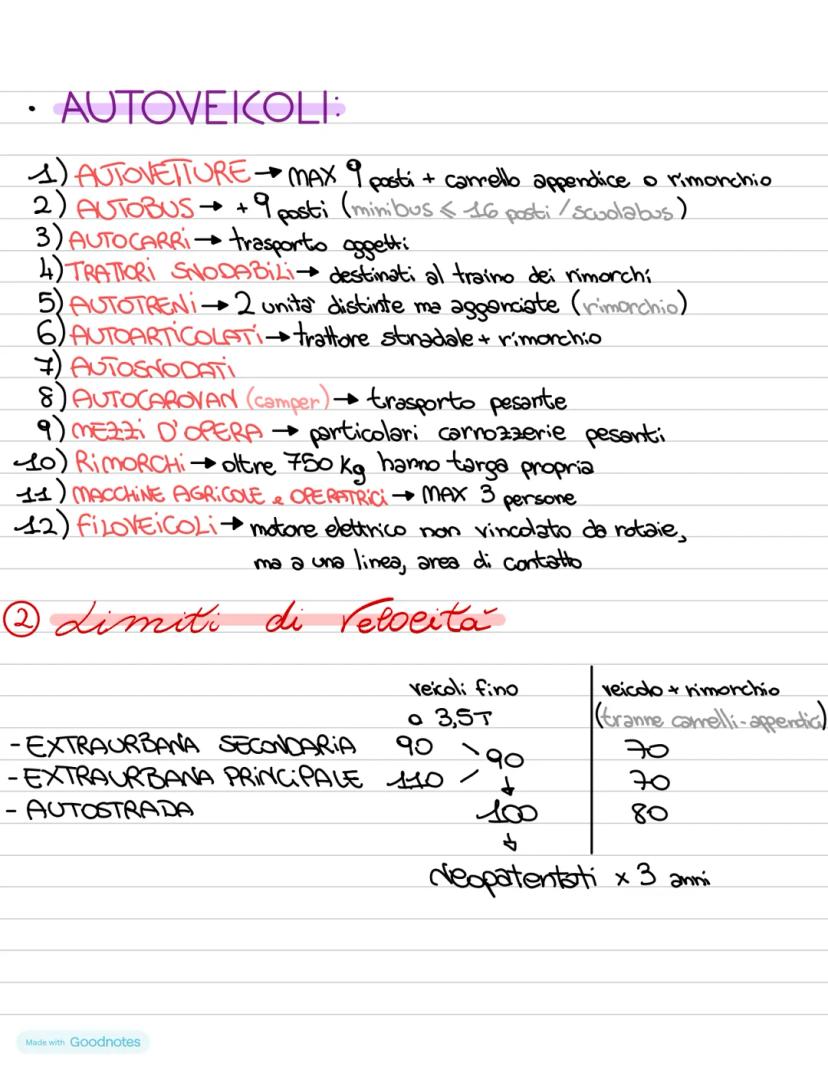 · AUTOVEICOLI:
1) AUTOVETTURE → MAX 9 posti + carrello appendice o rimorchio
2) AUTOBUS → + 9 posti (minibus ≤ 16 posti / scuolabus)
3) AUTOCARRI → trasporto oggetti
4) TRATTORI SNODABILI → destinati al traino dei rimorchi
5) AUTOTRENI → 2 unità distinte ma agganciate (rimorchio)
6) AUTOARTICOLATI → trattore stradale + rimorchio
7) AUTOSNODATI
8) AUTOCAROVAN (camper) → trasporto pesante
9) MEZZI D'OPERA → particolari carrozzerie pesanti
10) RIMORCHI → oltre 750 Kg hanno targa propria
11) MACCHINE AGRICOLE e OPERATRICI → MAX 3 persone
12) FILOVEICOLI → motore elettrico non vincolato da rotaie,
ma a una linea, area di contatto
② Limiti di velocità
veicoli fino veicolo + rimorchio
a 3,5T (tranne carrelli-appendici)
- EXTRAURBANA SECONDARIA 90 90 70
- EXTRAURBANA PRINCIPALE 110 ↓ 70
- AUTOSTRADA 100 80
↓
Neopatentati x 3 anni
Made with Goodnotes